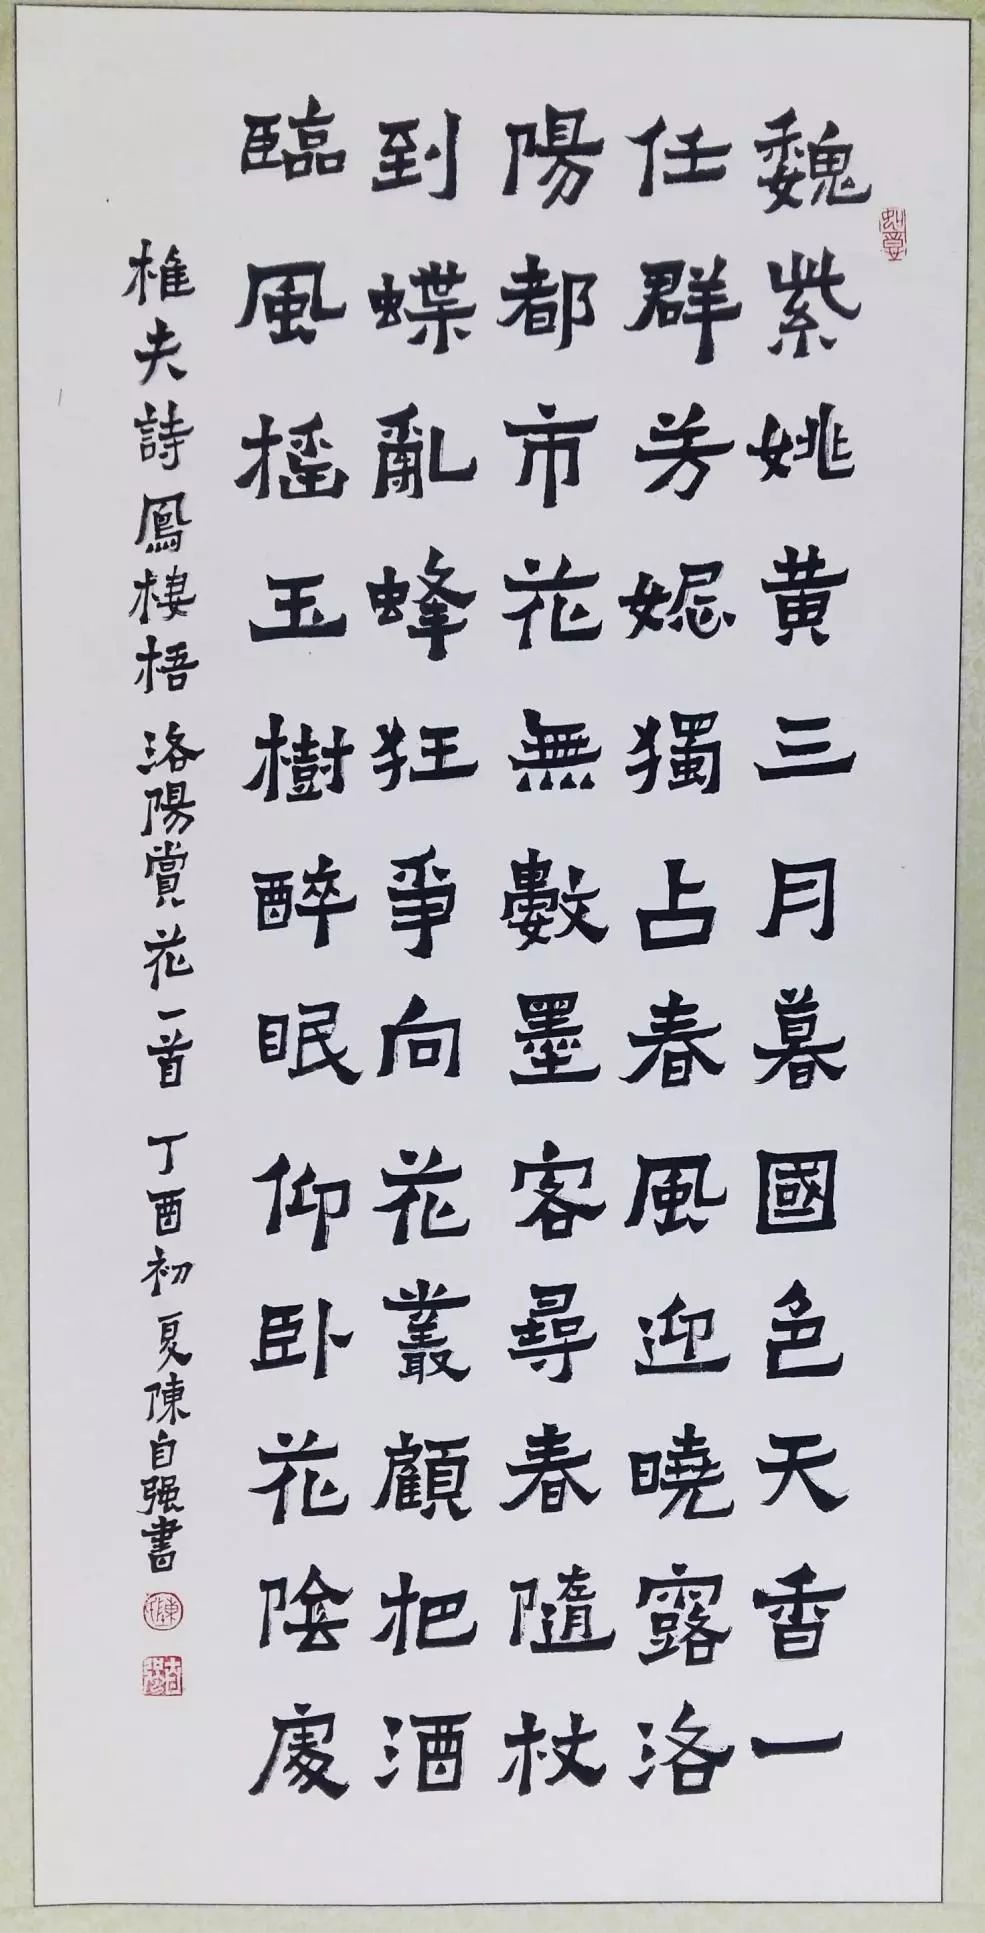 魏紫姚黄三月暮國色天香一
任群芳妮獨占春風迎曉露洛
陽都市花無數墨客尋春隨杖
到蝶亂蜂狂爭向花叢顧把酒
臨風搖玉樹醉眠仰卧花陰處
樵夫詩鳳棲梧洛陽賞花一首丁酉初夏陳自强書